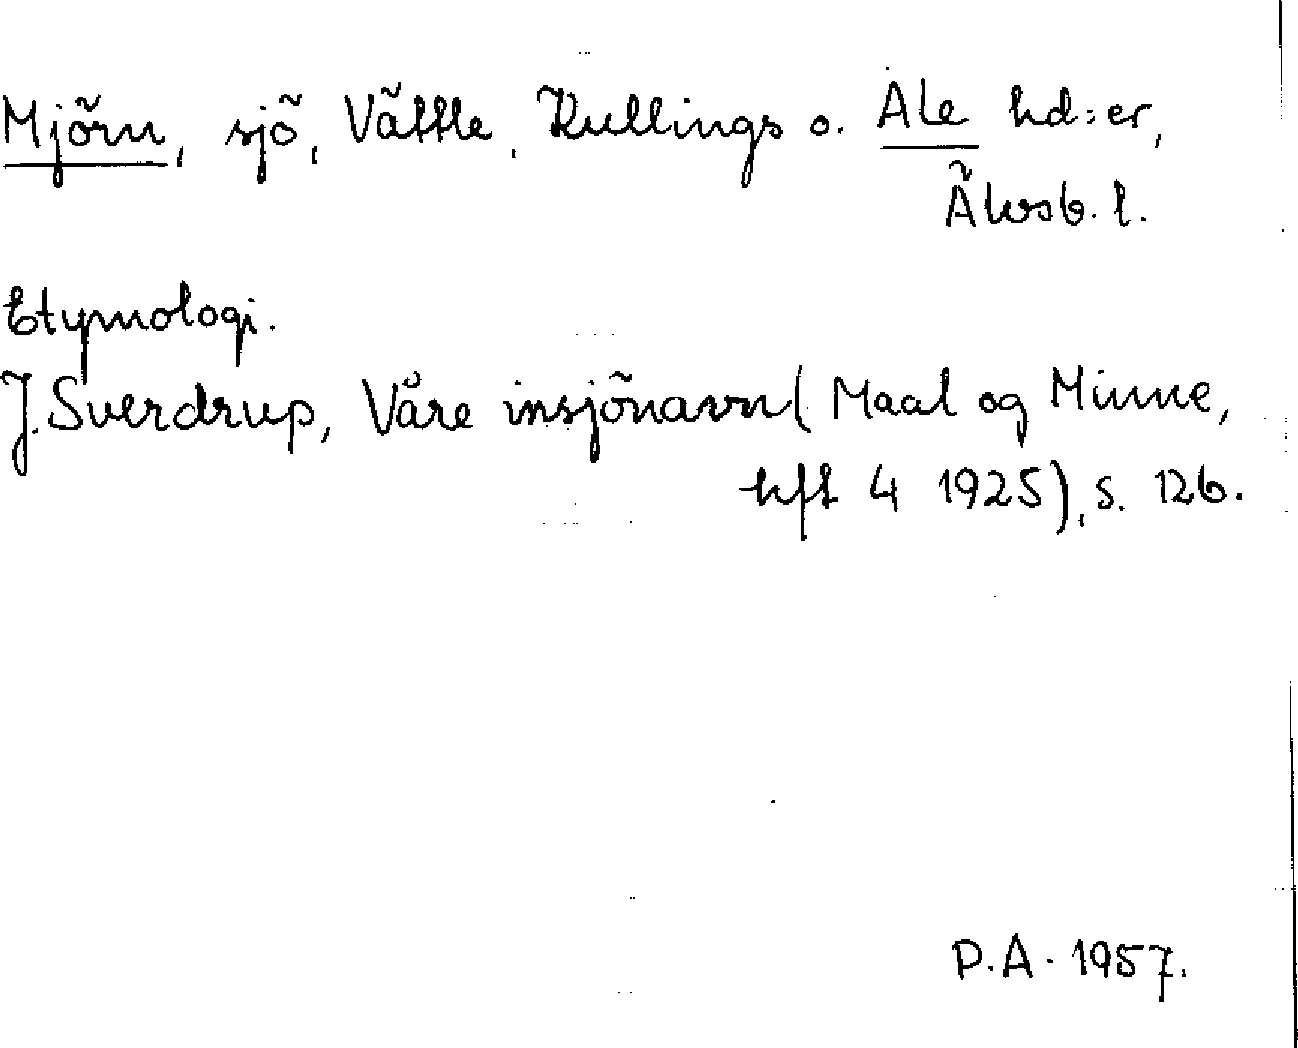 Mjörn, sjö, Vättle, Kullings o. Ale hd:er,
Älvsb. l.
Etymologi.
J. Sverdrup, Våre insjönavn (Maal og Minne,
hft 4 1925), s. 126.
P.A. 1957.